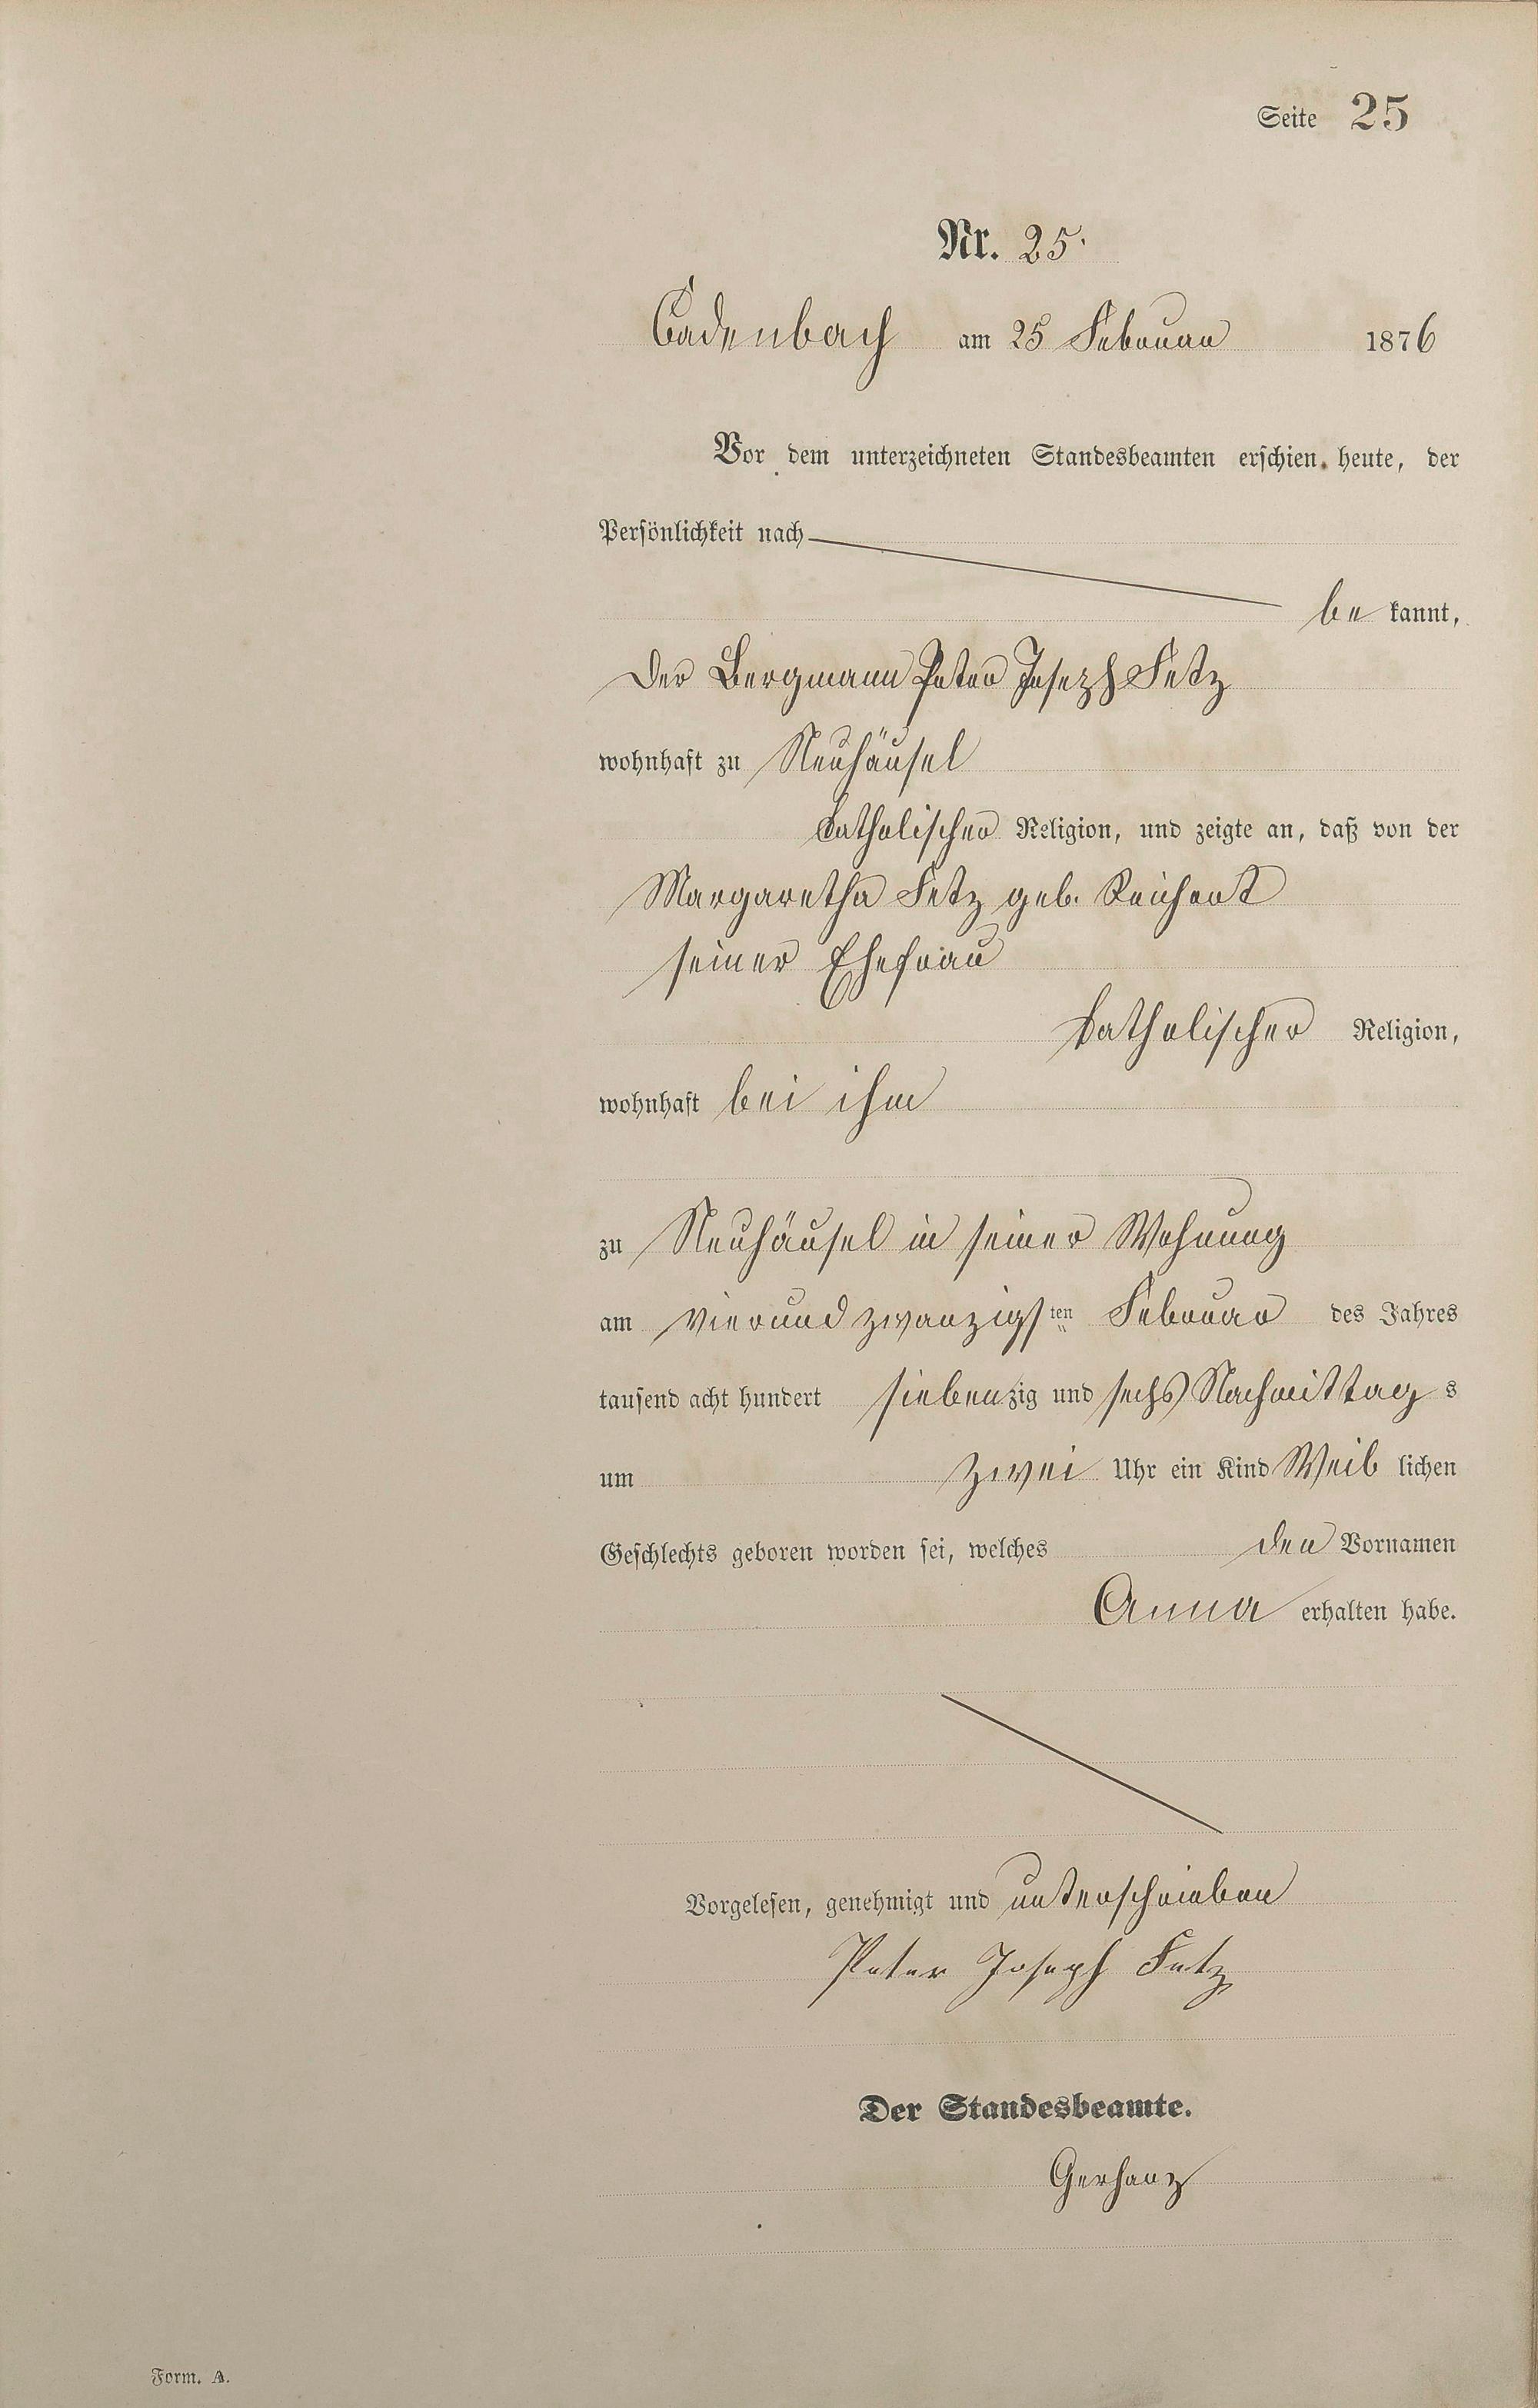 Seite 25
Nr. 25.
Cadenbach am 25 Februar 1876
Vor dem unterzeichneten Standesbeamten erschien heute, der
Persönlichkeit nach
be kannt,
der Bergmann Peter Joseph Fetz
wohnhaft zu Neuhäusel
katholischer Religion, und zeigte an, daß von der
Margaretha Fetz geb. Reichert
seiner Ehefrau
katholischer Religion,
wohnhaft bei ihm
zu Neuhäusel in seiner Wohnung
am vierundzwanzigsten Februar des Jahres
tausend acht hundert siebenzig und sechs Nachmittags
um zwei Uhr ein Kind Weiblichen
Geschlechts geboren worden sei, welches den Vornamen
Anna erhalten habe.
Vorgelesen, genehmigt und unterschrieben
Peter Joseph Fetz
Der Standesbeamte.
Gerhanz
Form. A.